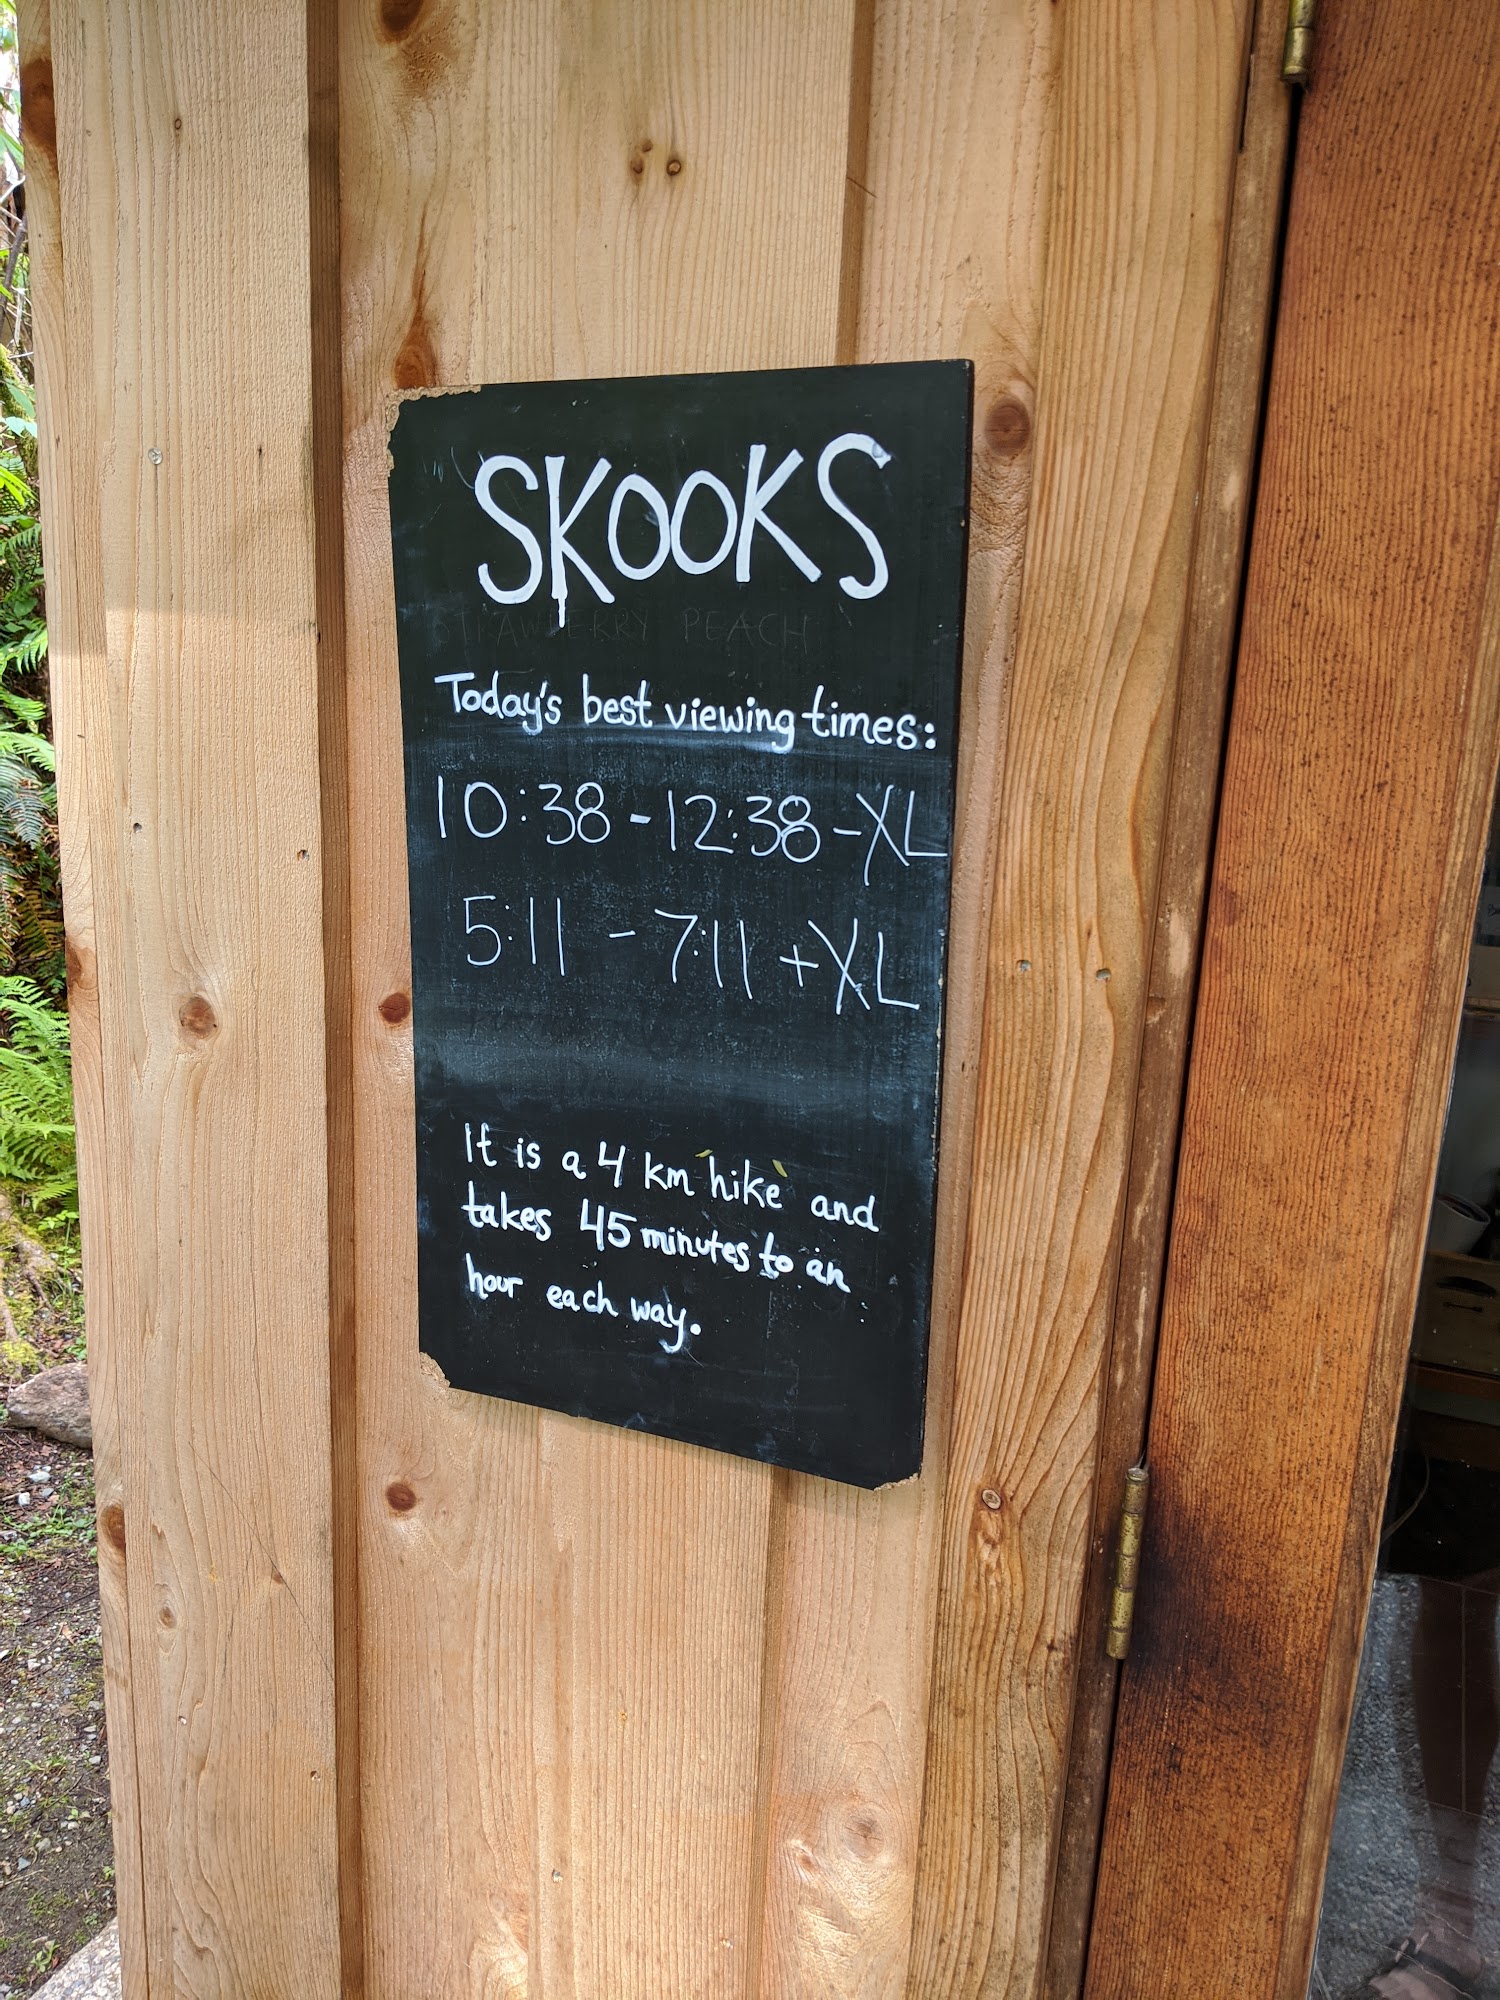 SKOOKS
STRAWBERRY PEACH
Today's best viewing times:
10:38 - 12:38 - XL
5:11 - 7:11 + XL
It is a 4 km "hike" and
takes 45 minutes to an
hour each way.